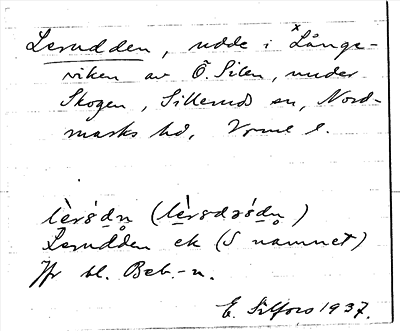 Lerudden, udde i Långe-
viken av Ö. Silen, under
Skogen, Sillerud sn, Nord-
marks hd, Vrml l.
Lerudden ek (S namnet)
Jfr bl. Beb.-n.
E. Silfors 1937.